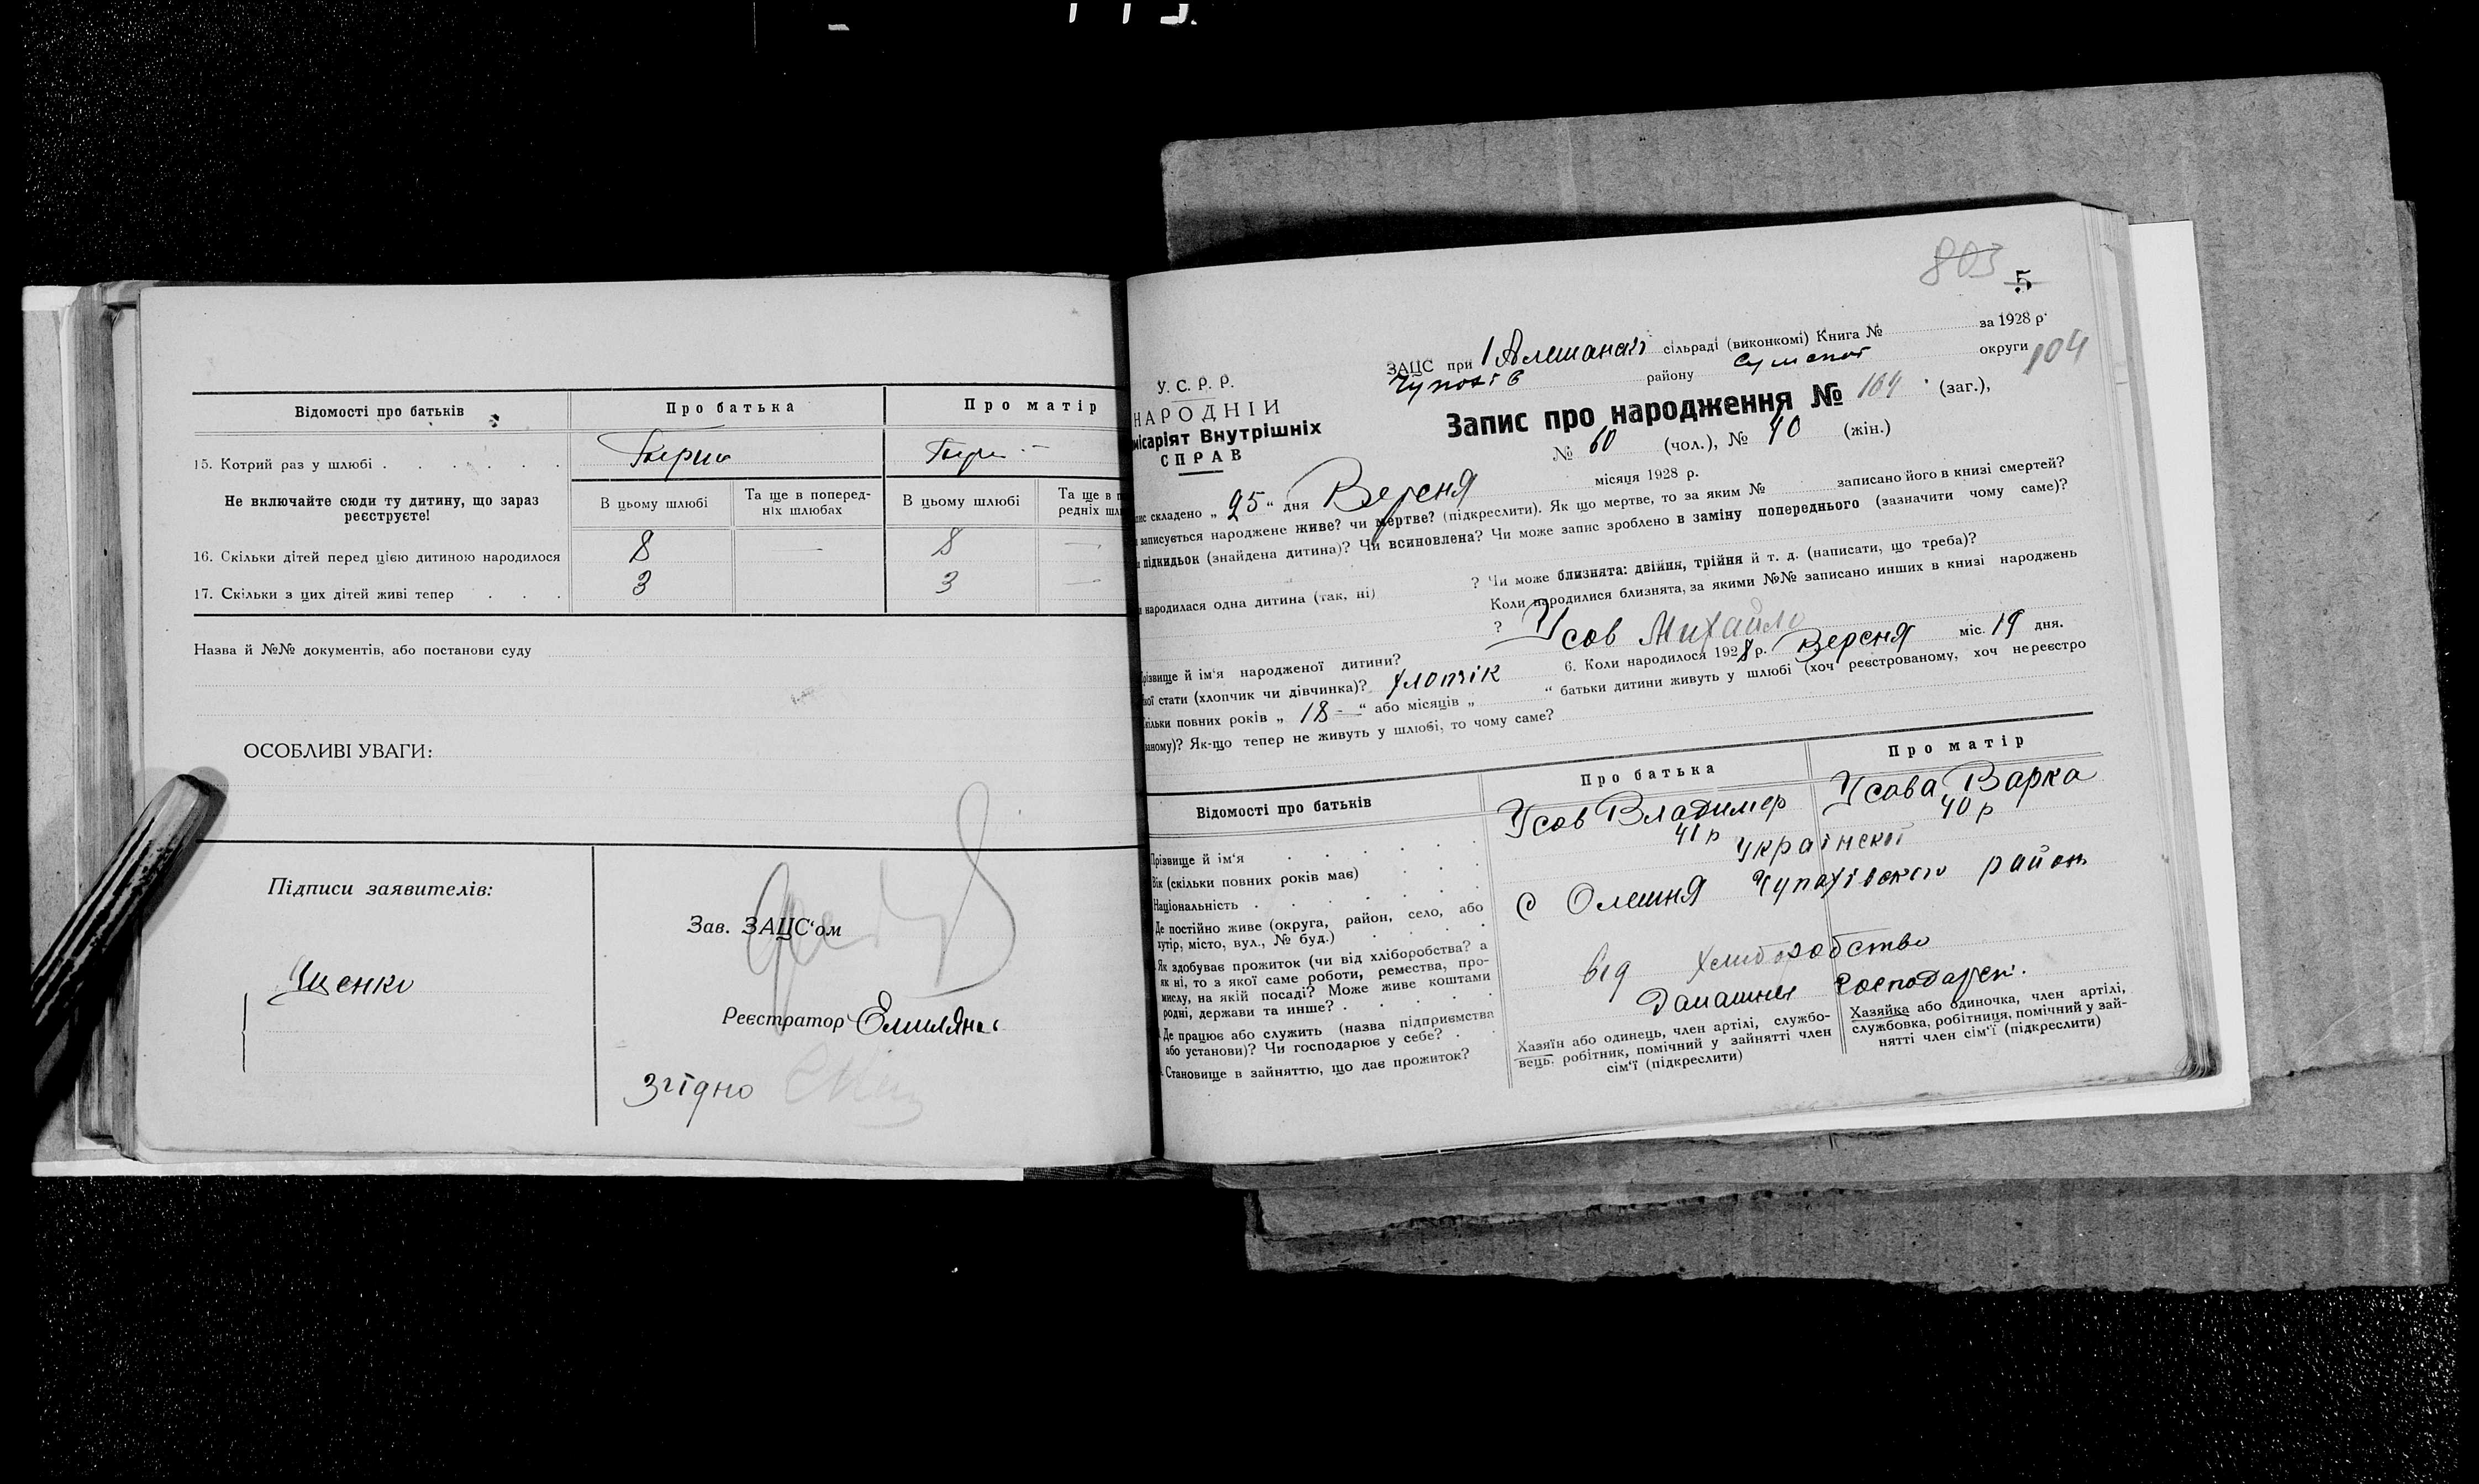 Відомості про батьків
Про батька
Про матір
15. Котрий раз у шлюбі
Не включайте сюди ту дитину, що зараз
реєструєте!
В цьому шлюбі
Та ще в поперед-
ніх шлюбах
В цьому шлюбі
Та ще в п
редніх шл
16. Скільки дітей перед цією дитиною народилося 8 — 8 —
17. Скільки з цих дітей живі тепер 3 3 —
Назва й №№ документів, або постанови суду
ОСОБЛИВІ УВАГИ:
Підписи заявителів:
Ященко
Зав. ЗАЦС‘ом
Реєстратор
Згідно
803
5
У. С. Р. Р.
НАРОДНІЙ
місаріят Внутрішніх
СПРАВ
ЗАЦС при сільраді (виконкомі) Книга № за 1928 р.
району округи 104
Запис про народження № 104 (заг.),
№ 60 (чол.), № 40 (жін.)
пис складено „ 25 “ дня Версня місяця 1928 р.
записується народжене живе? чи мертве? (підкреслити). Як що мертве, то за яким № записано його в книзі смертей?
підкидьок (знайдена дитина)? Чи всиновлена? Чи може запис зроблено в заміну попереднього (зазначити чому саме)?
народилася одна дитина (так, ні) ? Чи може близнята: двійня, трійня й т. д. (написати, що треба)?
Коли народилися близнята, за якими №№ записано инших в книзі народжень
?
різвище й ім‘я народженої дитини? Усов Михайло
кої стати (хлопчик чи дівчинка)? хлопчік 6. Коли народилося 1928 р. Версня міс. 19 дня.
кільки повних років „ 18 — “ або місяців „ “ батьки дитини живуть у шлюбі (хоч реєстрованому, хоч нереєстро
ваному)? Як-що тепер не живуть у шлюбі, то чому саме?
Відомості про батьків
Про батька
Про матір
Прізвище й ім‘я Усов Владимер Усова Варка
Вік (скільки повних років має) 41 р 40 р
Національність Української
Де постійно живе (округа, район, село, або
хутір, місто, вул., № буд.)
с Олешня Чупахівского район
Як здобуває прожиток (чи від хліборобства? а
як ні, то з якої саме роботи, ремества, про-
мислу, на якій посаді? Може живе коштами
родні, держави та инше?
від
Де працює або служить (назва підприємства
або установи)? Чи господарює у себе?
Становище в зайняттю, що дає прожиток?
Хазяїн або одинець, член артілі, службо-
вець, робітник, помічний у зайнятті член
сім‘ї (підкреслити)
Хазяйка або одиночка, член артілі,
службовка, робітниця, помічний у зай-
нятті член сім‘ї (підкреслити)